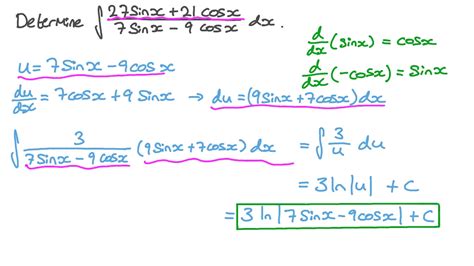 Determine ∫ (27Sinx + 21 cosx)/(7Sinx − 9 cosx) dx.
d/dx (sinx) = cosx
d/dx (-cosx) = Sinx
u = 7Sinx − 9cosx
du/dx = 7cosx + 9 Sinx → du = (9Sinx + 7cosx)dx
∫ 3/(7Sinx − 9 cosx) (9Sinx + 7cosx) dx = ∫ 3/u du
= 3 ln|u| + c
= 3 ln|7Sinx − 9cosx| + c